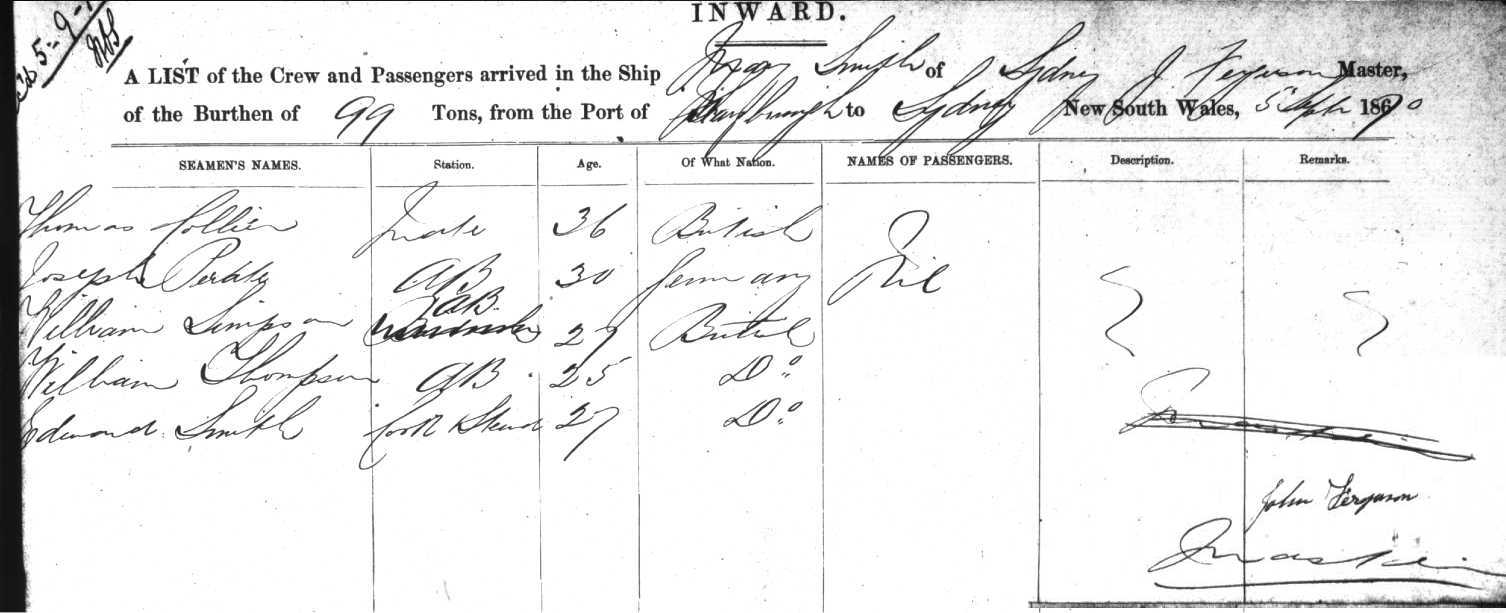 5-9-
INWARD.
A LIST of the Crew and Passengers arrived in the Ship Mary Smith of Sydney J Ferguson Master,
of the Burthen of 99 Tons, from the Port of Maryborough to Sydney New South Wales, 5 Sept 1870
SEAMEN'S NAMES. Station. Age. Of What Nation. NAMES OF PASSENGERS. Description. Remarks.
Thomas Collier Mate 36 British Nil
Joseph AB 30 Germany
William Simpson AB 27 British
William Thompson AB 25 Do
Edmond Smith Cook Steward 27 Do
John Ferguson
Master